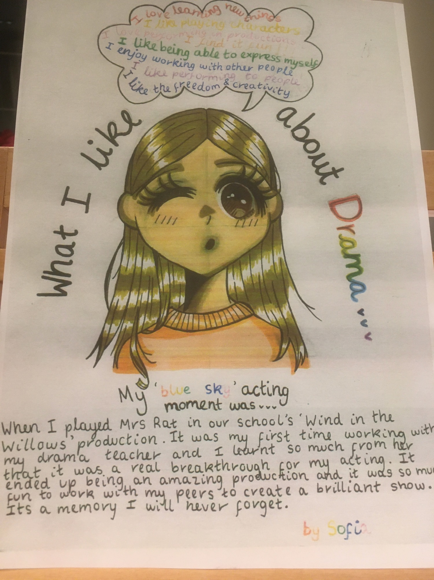 I love learning new things
I like playing characters
I like being able to express myself
I enjoy working with other people
I like performing to people
I like the freedom & creativity
What I like about Drama...
My 'blue sky' acting
moment was...
When I played Mrs Rat in our school's 'Wind in the
Willows' production. It was my first time working with
my drama teacher and I learnt so much from her
that it was a real breakthrough for my acting. It
ended up being an amazing production and it was so much
fun to work with my peers to create a brilliant show.
Its a memory I will never forget.
by Sofia